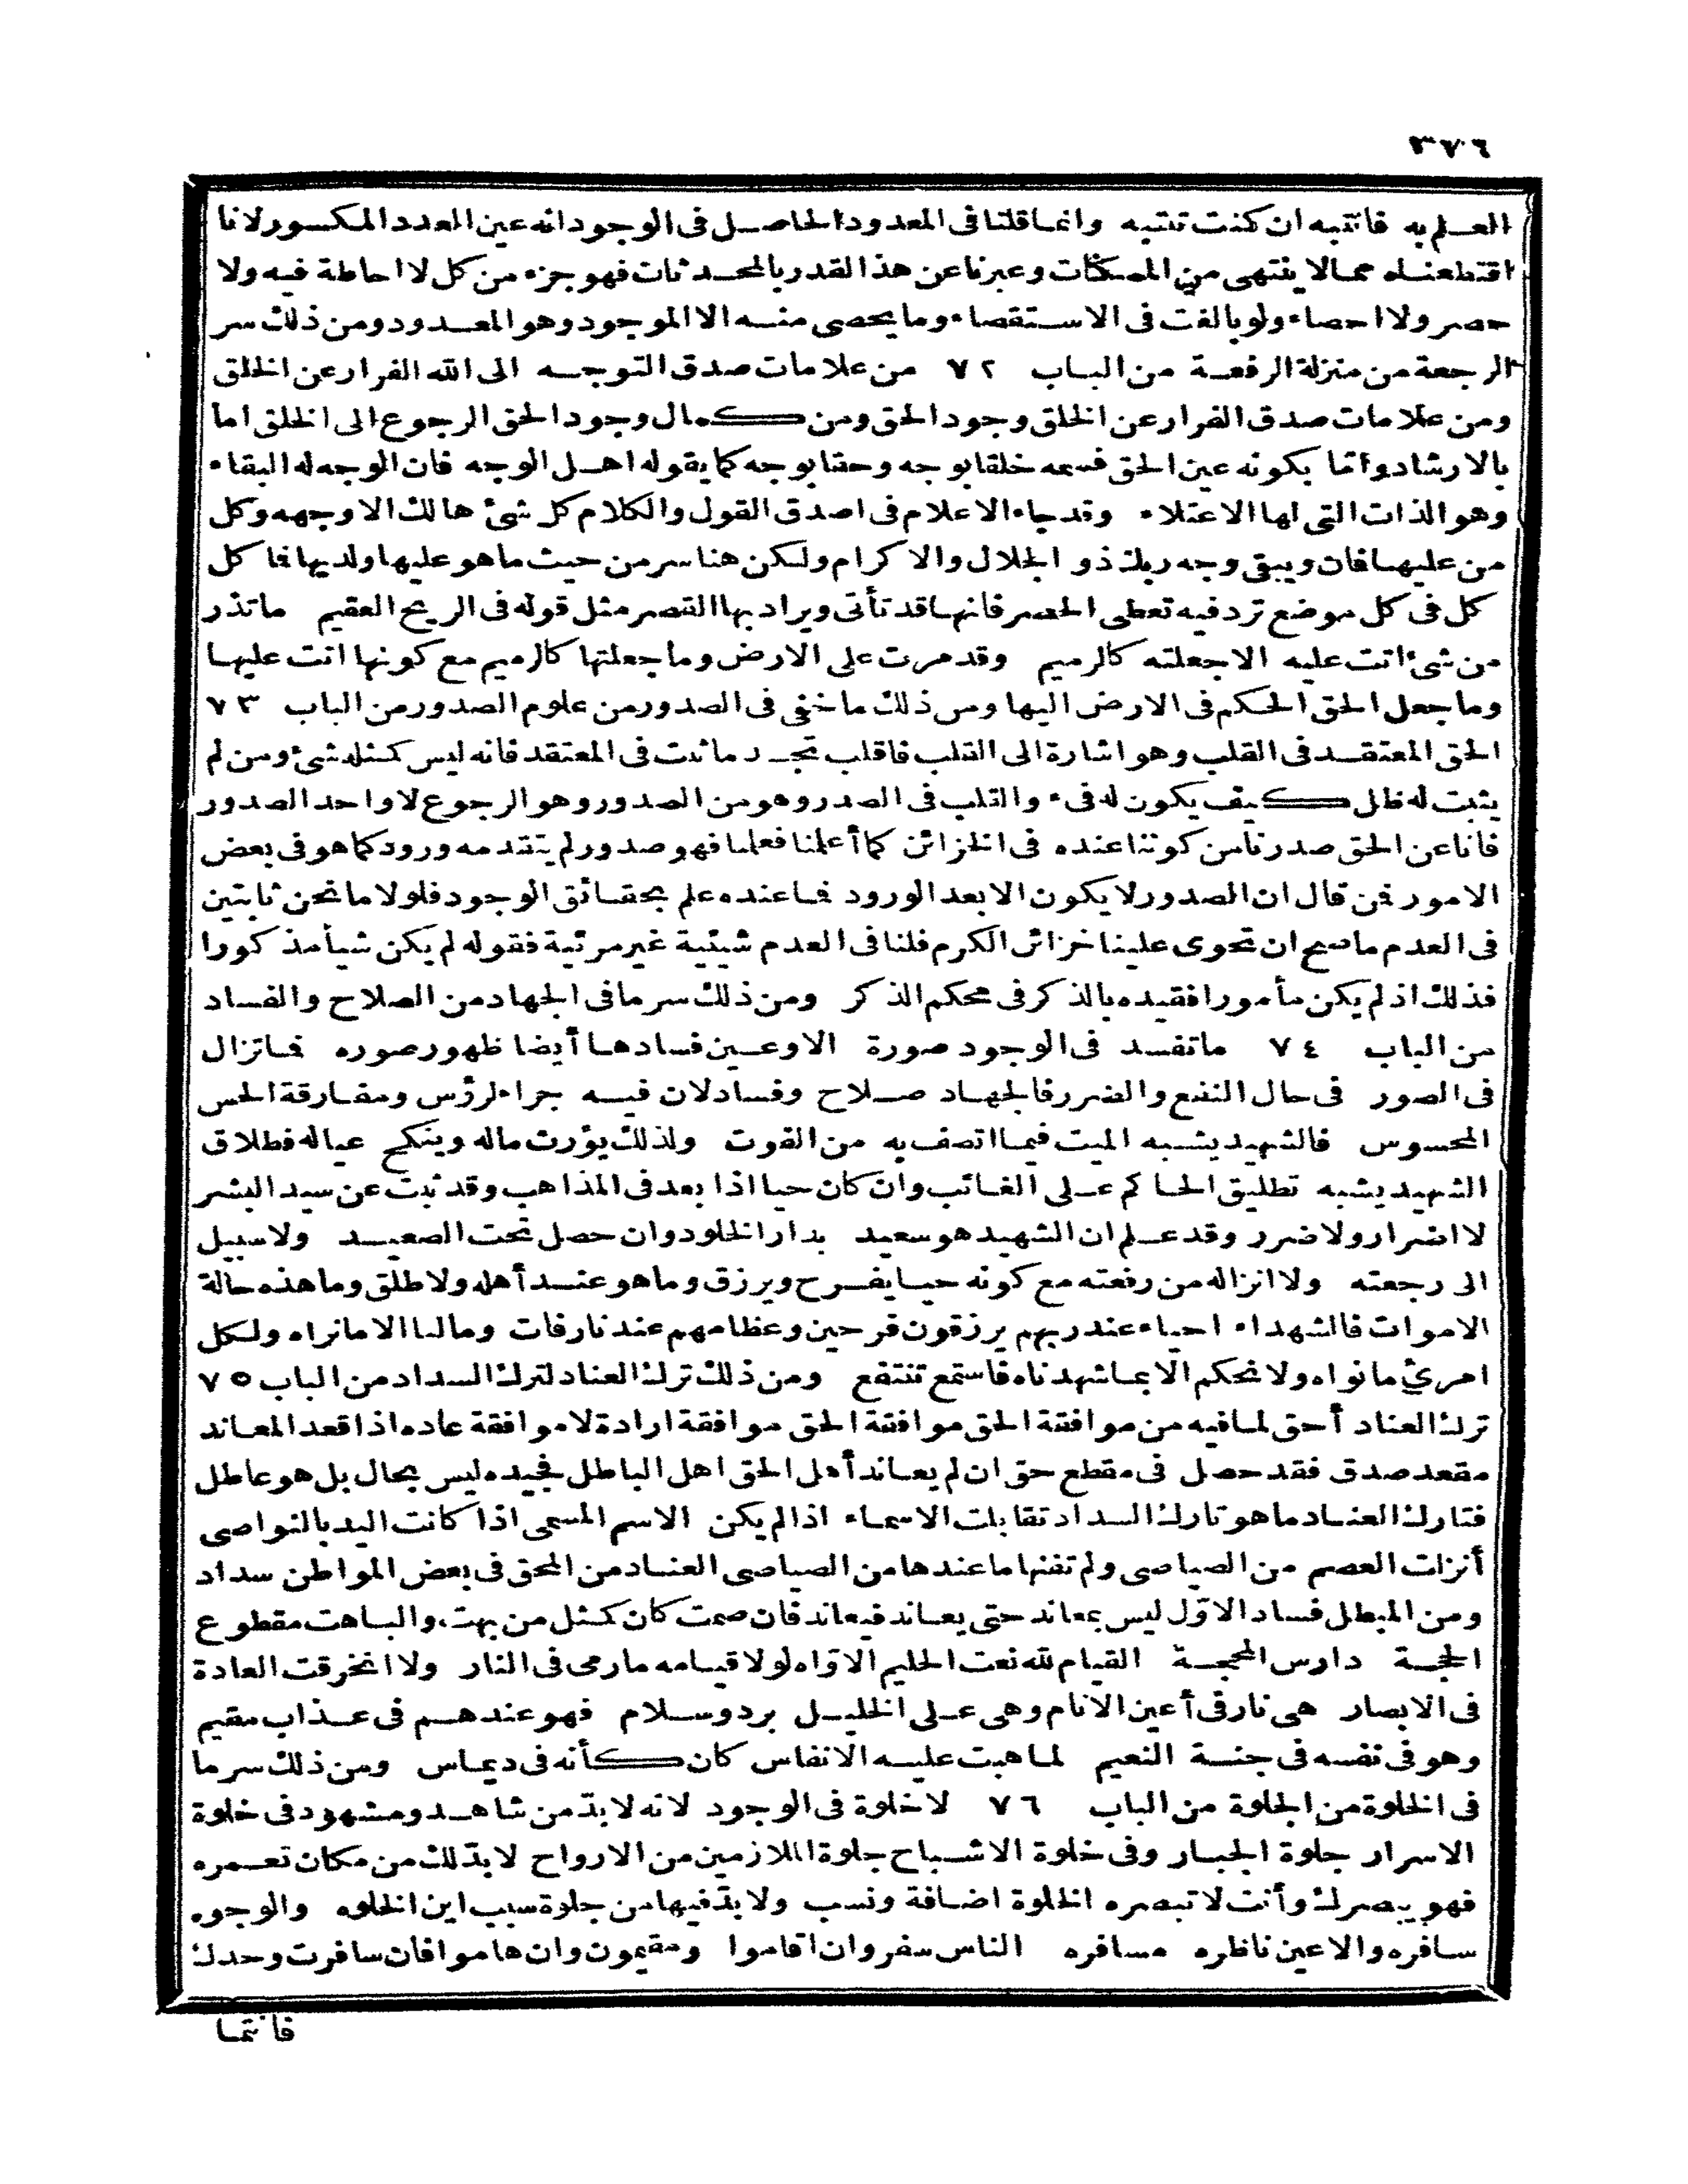 ٣٧٦
العلم به فانتبه ان كنت تنتبه وانما قلنا فى المعدود الحاصل فى الوجود انه عين العدد المكسور لانا
اقتطعناه مما لا ينتهى من الممكنات وعبرنا عن هذا القدر بالمحدثات فهو جزء من كل لا احاطة فيه ولا
حصر ولا احصاء ولو بالغت فى الاستقصاء وما يحصى منه الا الموجود وهو المعدود ومن ذلك سر
الرجعة من منزلة الرفعة من الباب ٧٢ من علامات صدق التوجه الى الله الفرار عن الخلق
ومن علامات صدق الفرار عن الخلق وجود الحق ومن كمال وجود الحق الرجوع الى الخلق اما
بالارشاد وامّا بكونه عين الحق فسمه خلقا بوجه وحقا بوجه كما يقوله اهل الوجه فان الوجه له البقاء
وهو الذات التى لها الاعتلاء وقد جاء الاعلام فى اصدق القول والكلام كل شئ هالك الا وجهه وكل
من عليها فان ويبقى وجه ربك ذو الجلال والاكرام ولكن هنا سر من حيث ما هو عليها ولديها فما كل
كل فى كل موضع ترد فيه تعطى الحصر فانها قد تأتى ويراد بها القصر مثل قوله فى الريح العقيم ما تذر
من شئ اتت عليه الا جعلته كالرميم وقد مرت على الارض وما جعلتها كالرميم مع كونها اتت عليها
وما جعل الحق الحكم فى الارض اليها ومن ذلك ما خفى فى الصدور من علوم الصدور من الباب ٧٣
الحق المعتقد فى القلب وهو اشارة الى القلب فاقلب تجد ما ثبت فى المعتقد فانه ليس كمثله شئ ومن لم
يثبت له ظل كيف يكون له فىء والقلب فى الصدر وهو من الصدور وهو الرجوع لا واحد الصدور
فانا عن الحق صدرنا من كوننا عنده فى الخزائن كما أعلمنا فعلمنا فهو صدور لم يتقدمه ورود كما هو فى بعض
الامور فمن قال ان الصدور لا يكون الا بعد الورود فما عنده علم بحقائق الوجود فلولا ما نحن ثابتين
فى العدم ما صح ان تحوى علينا خزائن الكرم فلنا فى العدم شيئية غير مرئية فقوله لم يكن شيأ مذكورا
فذلك اذ لم يكن مأمورا فقيده بالذكر فى محكم الذكر ومن ذلك سر ما فى الجهاد من الصلاح والفساد
من الباب ٧٤ ما تفسد فى الوجود صورة الا وعين فسادها أيضا ظهور صوره فما تزال
فى الصور فى حال النفع والضرر فالجهاد صلاح وفساد لان فيه جراء لرؤس ومفارقة الحس
المحسوس فالشهيد يشبه الميت فيما اتصف به من القوت ولذلك يؤرث ماله وينكح عياله فطلاق
الشهيد يشبه تطليق الحاكم على الغائب وان كان حيا اذا بعد فى المذاهب وقد ثبت عن سيد البشر
لا اضرار ولا ضرر وقد علم ان الشهيد هو سعيد بدار الخلود وان حصل تحت الصعيد ولا سبيل
الى رجعته ولا انزاله من رفعته مع كونه حيا يفرح ويرزق وما هو عند أهله ولا طلق وما هذه حالة
الاموات فالشهداء احياء عند ربهم يرزقون فرحين وعظامهم عندنا رفات وما لنا الا ما نراه ولكل
امرئ ما نواه ولا نحكم الا بما شهدناه فاستمع تنتفع ومن ذلك ترك العناد لترك السداد من الباب ٧٥
ترك العناد أحق لما فيه من موافقة الحق موافقة الحق موافقة ارادة لا موافقة عاده اذا قعد المعاند
مقعد صدق فقد حصل فى مقطع حق ان لم يعاند أهل الحق اهل الباطل فجيده ليس بحال بل هو عاطل
فتارك العناد ما هو تارك السداد تقابلت الاسماء اذا لم يكن الاسم المسمى اذا كانت اليد بالنواصى
أنزلت العصم من الصياصى ولم تغنها ما عندها من الصياصى العناد من المحق فى بعض المواطن سداد
ومن المبطل فساد الاوّل ليس بمعاند حتى يعاند فيعاند فان صمت كان كمثل من بهت، والباهت مقطوع
الحجة دارس المحجة القيام لله نعت الحليم الاوّاه لولا قيامه ما رمى فى النار ولا انخرقت العادة
فى الابصار هى نار فى أعين الانام وهى على الخليل برد وسلام فهو عندهم فى عذاب مقيم
وهو فى نفسه فى جنة النعيم لما هبت عليه الانفاس كان كأنه فى ديماس ومن ذلك سر ما
فى الخلوة من الجلوة من الباب ٧٦ لا خلوة فى الوجود لانه لا بدّ من شاهد ومشهود فى خلوة
الاسرار جلوة الجبار وفى خلوة الاشباح جلوة اللازمين من الارواح لا بدّ لك من مكان تعمره
فهو يبصرك وأنت لا تبصره الخلوة اضافة ونسب ولا بدّ فيها من جلوة سبب اين الخلوه والوجوه
سافره والاعين ناظره مسافره الناس سفر وان اقاموا ومقيمون وان هاموا فان سافرت وحدك
فانتما